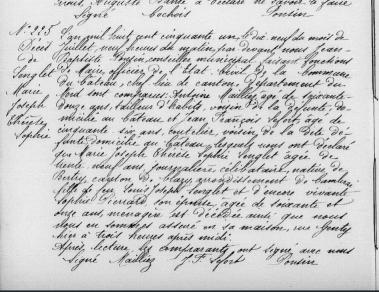 Signé Cochois Ponsin
N° 225
Décès
de
Senglet
Marie
Joseph
Thérèse
Sophie
L'an mil huit cent cinquante un le dix neuf du mois de
Juillet, neuf heures du matin, par devant nous Jean
Baptiste Ponsin, conseiller municipal faisant fonctions
de Maire, officier de l'état civil de la commune
du Cateau, chef lieu de canton, département du
Nord sont comparus Antoine Mailliez âgé de soixante
douze ans, tailleur d'habits, voisin de la défunte, do-
micilié au Cateau et Jean François Lefort, âgé de
cinquante six ans, coutelier, voisin de la dite dé-
funte domicilié au Cateau, lesquels nous ont déclaré
que Marie Joseph Thérèse Sophie Senglet âgée de
trente neuf ans journalière, célibataire, native de
canton de arrondissement de Cambrai
fille de feu Louis Joseph Senglet et d'encore vivante
Sophie son épouse, âgée de soixante et
onze ans ménagère est décédée ainsi que nous
nous en sommes assuré en sa maison, rue
hier à trois heures après midi.
Après lecture, les comparants ont signé avec nous
Signé Mailliez J. F. Lefort Ponsin